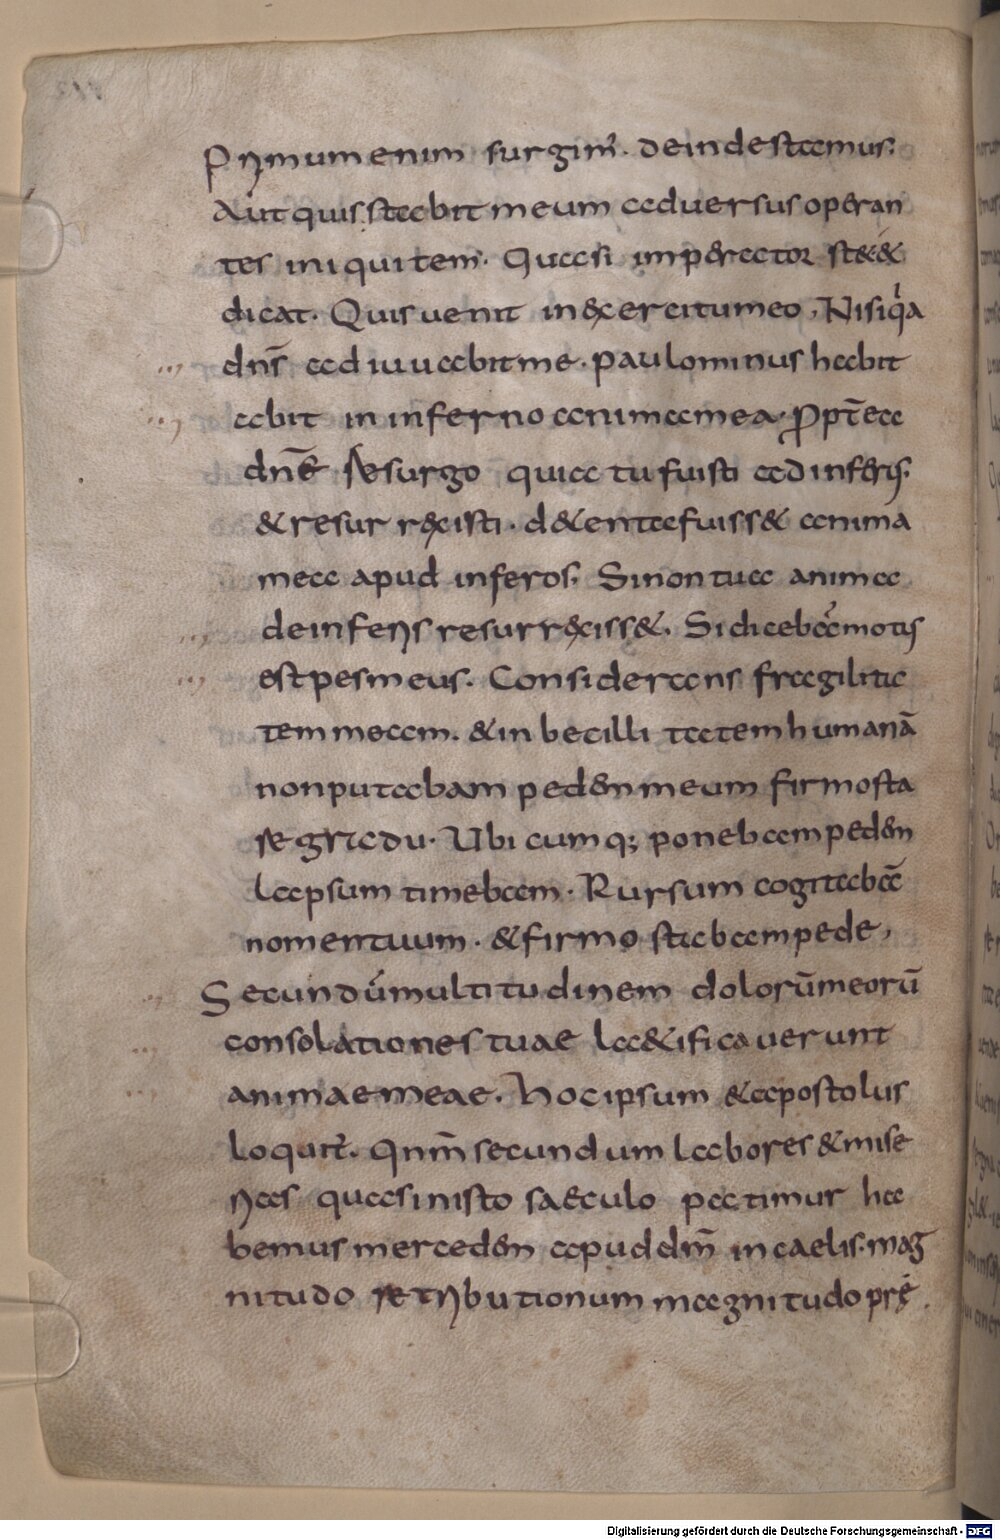 Primum enim surgim̄. deinde stamus.
Aut quis stabit meum adversus operan
tes iniquitem. Quasi imperator stet &
dicat. Quis venit in exercitu meo, Nisi q̇a
dn̄s adiuvabit me. paulominus habit
abit in inferno anima mea. Propt̄ea
dn̄e resurgo quia tu fuisti ad inferis.
& resurrexisti. d&enta fuiss& anima
mea apud inferos. Si non tua anima
de inferis resurrexiss&. Si dicebā motus
est pes meus. Considerans fragilita
tem meam. & inbecillitatem humanā
non putabam pedem meum firmo sta
re gradu. Ubicumq; ponebam pedem
lapsum timebam. Rursum cogitabā
nomen tuum. & firmo stabam pede,
Secundū multitudinem dolorū meorū
consolationes tuae la&ificaverunt
animae meae. Hoc ipsum & apostolus
loquit̄. Qnm̄ secundum labores & mise
rias quas in isto saeculo patimur ha
bemus mercedem apud dm̄ in caelis. mag
nitudo retributionum magnitudo prę.
Digitalisierung gefördert durch die Deutsche Forschungsgemeinschaft - DFG